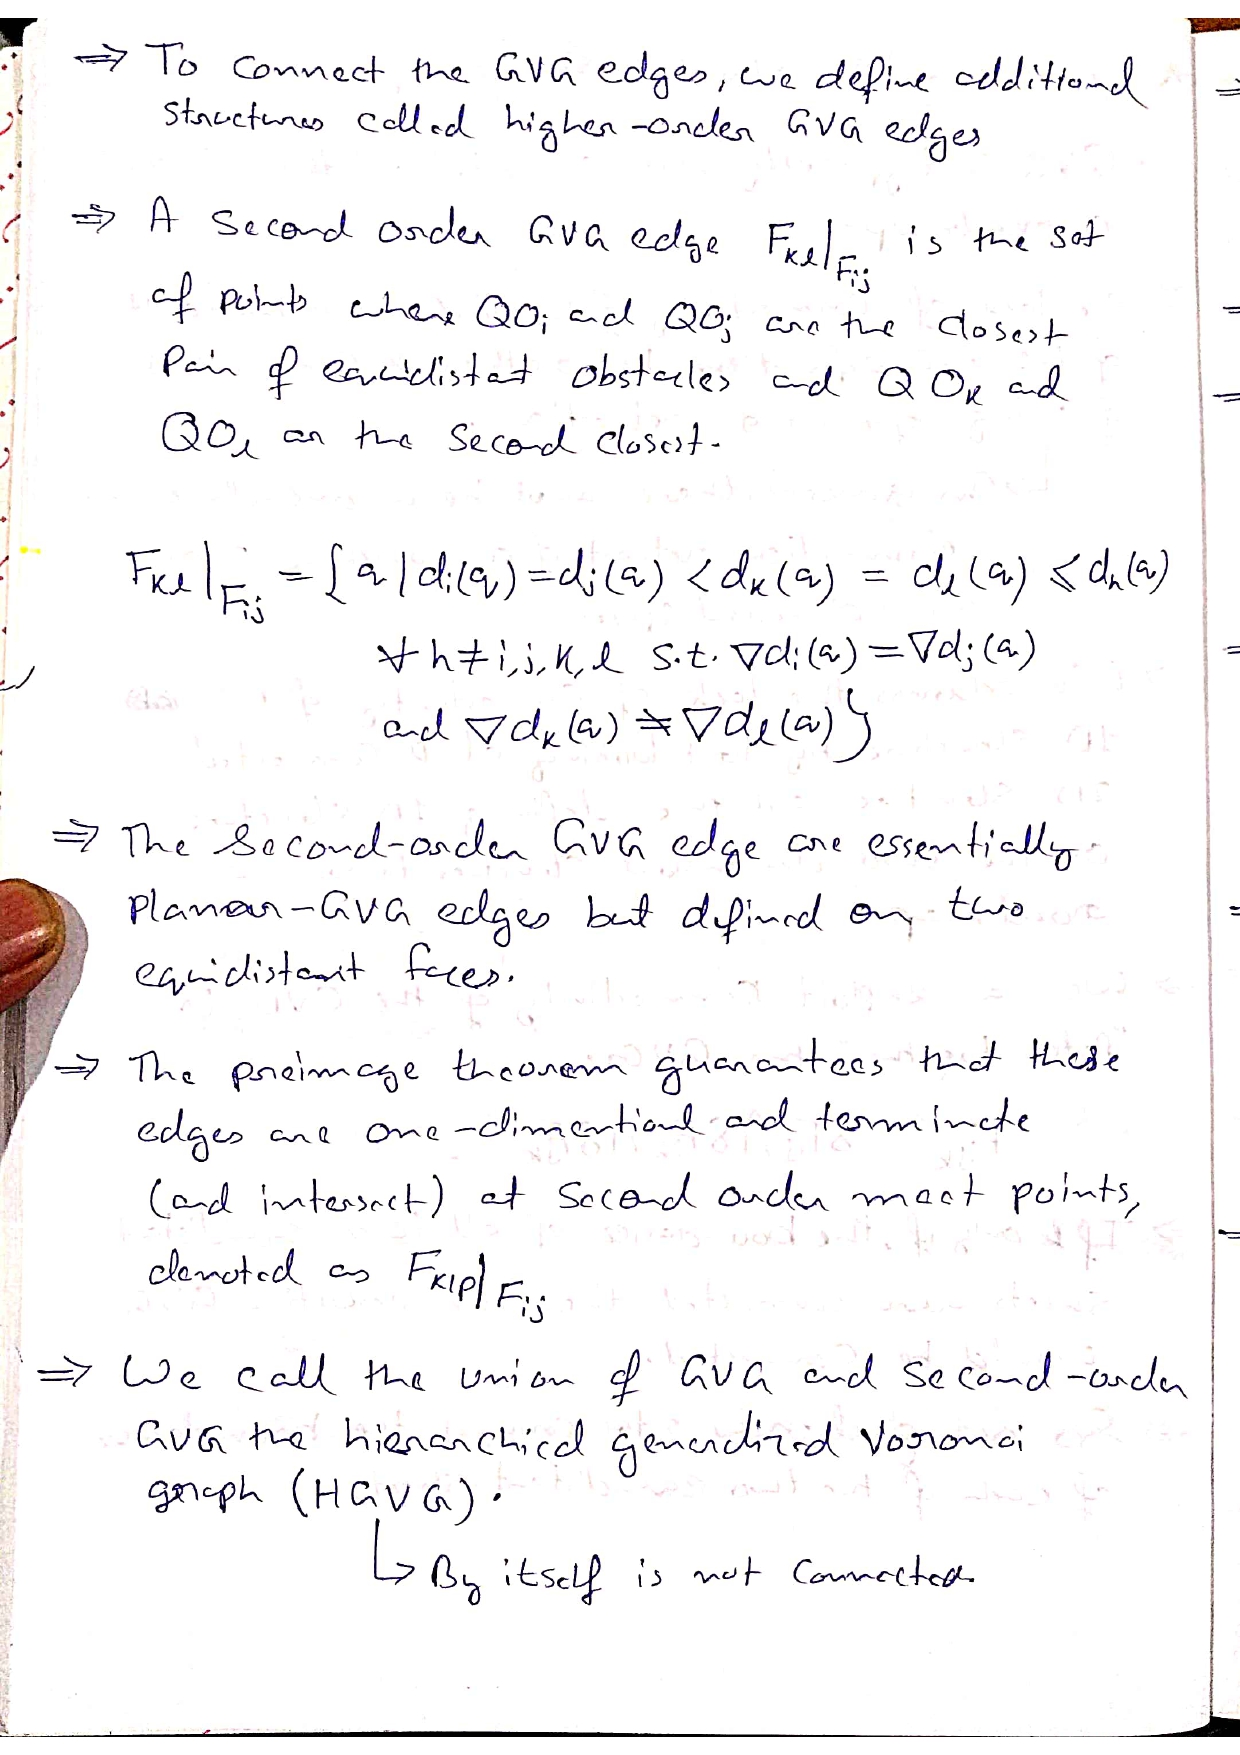 ⇒ To connect the GVG edges, we define additional
structures called higher-order GVG edges
⇒ A second order GVG edge F_{kl}|_{F_{ij}} is the set
of points where QO_i and QO_j are the closest
Pair of equidistant obstacles and QO_k and
QO_l are the second closest.
F_{kl}|_{F_{ij}} = { q | d_i(q) = d_j(q) < d_k(q) = d_l(q) ≤ d_h(q)
∀ h ≠ i, j, k, l s.t. ∇d_i(q) = ∇d_j(q)
and ∇d_k(q) ≠ ∇d_l(q) }
⇒ The second-order GVG edge are essentially
planar-GVG edges but defined on two
equidistant faces.
⇒ The preimage theorem guarantees that these
edges are one-dimentional and terminate
(and intersect) at second order meet points,
denoted as F_{klp}|_{F_{ij}}
⇒ We call the union of GVG and second-order
GVG the hierarchical generalized Voronoi
graph (HGVG).
↳ By itself is not connected.